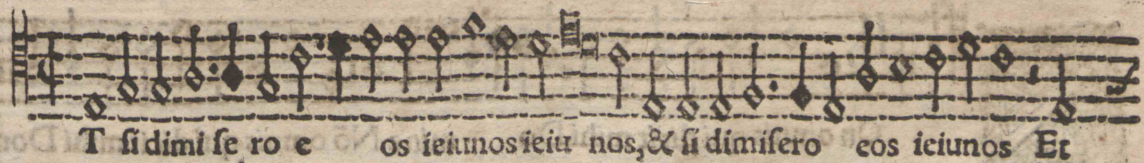 T si dimi se ro e os ieiunos ieiu nos, & si dimisero eos ieiunos Et